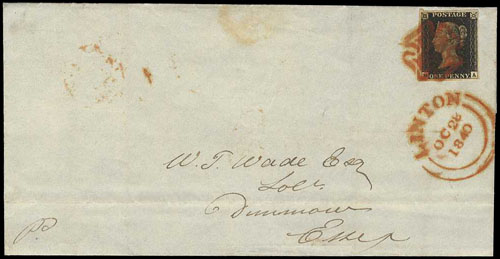 POSTAGE
ONE PENNY
A
LINTON
OC 28
1840
W. T. Wade Esq
Dunmow
Essex